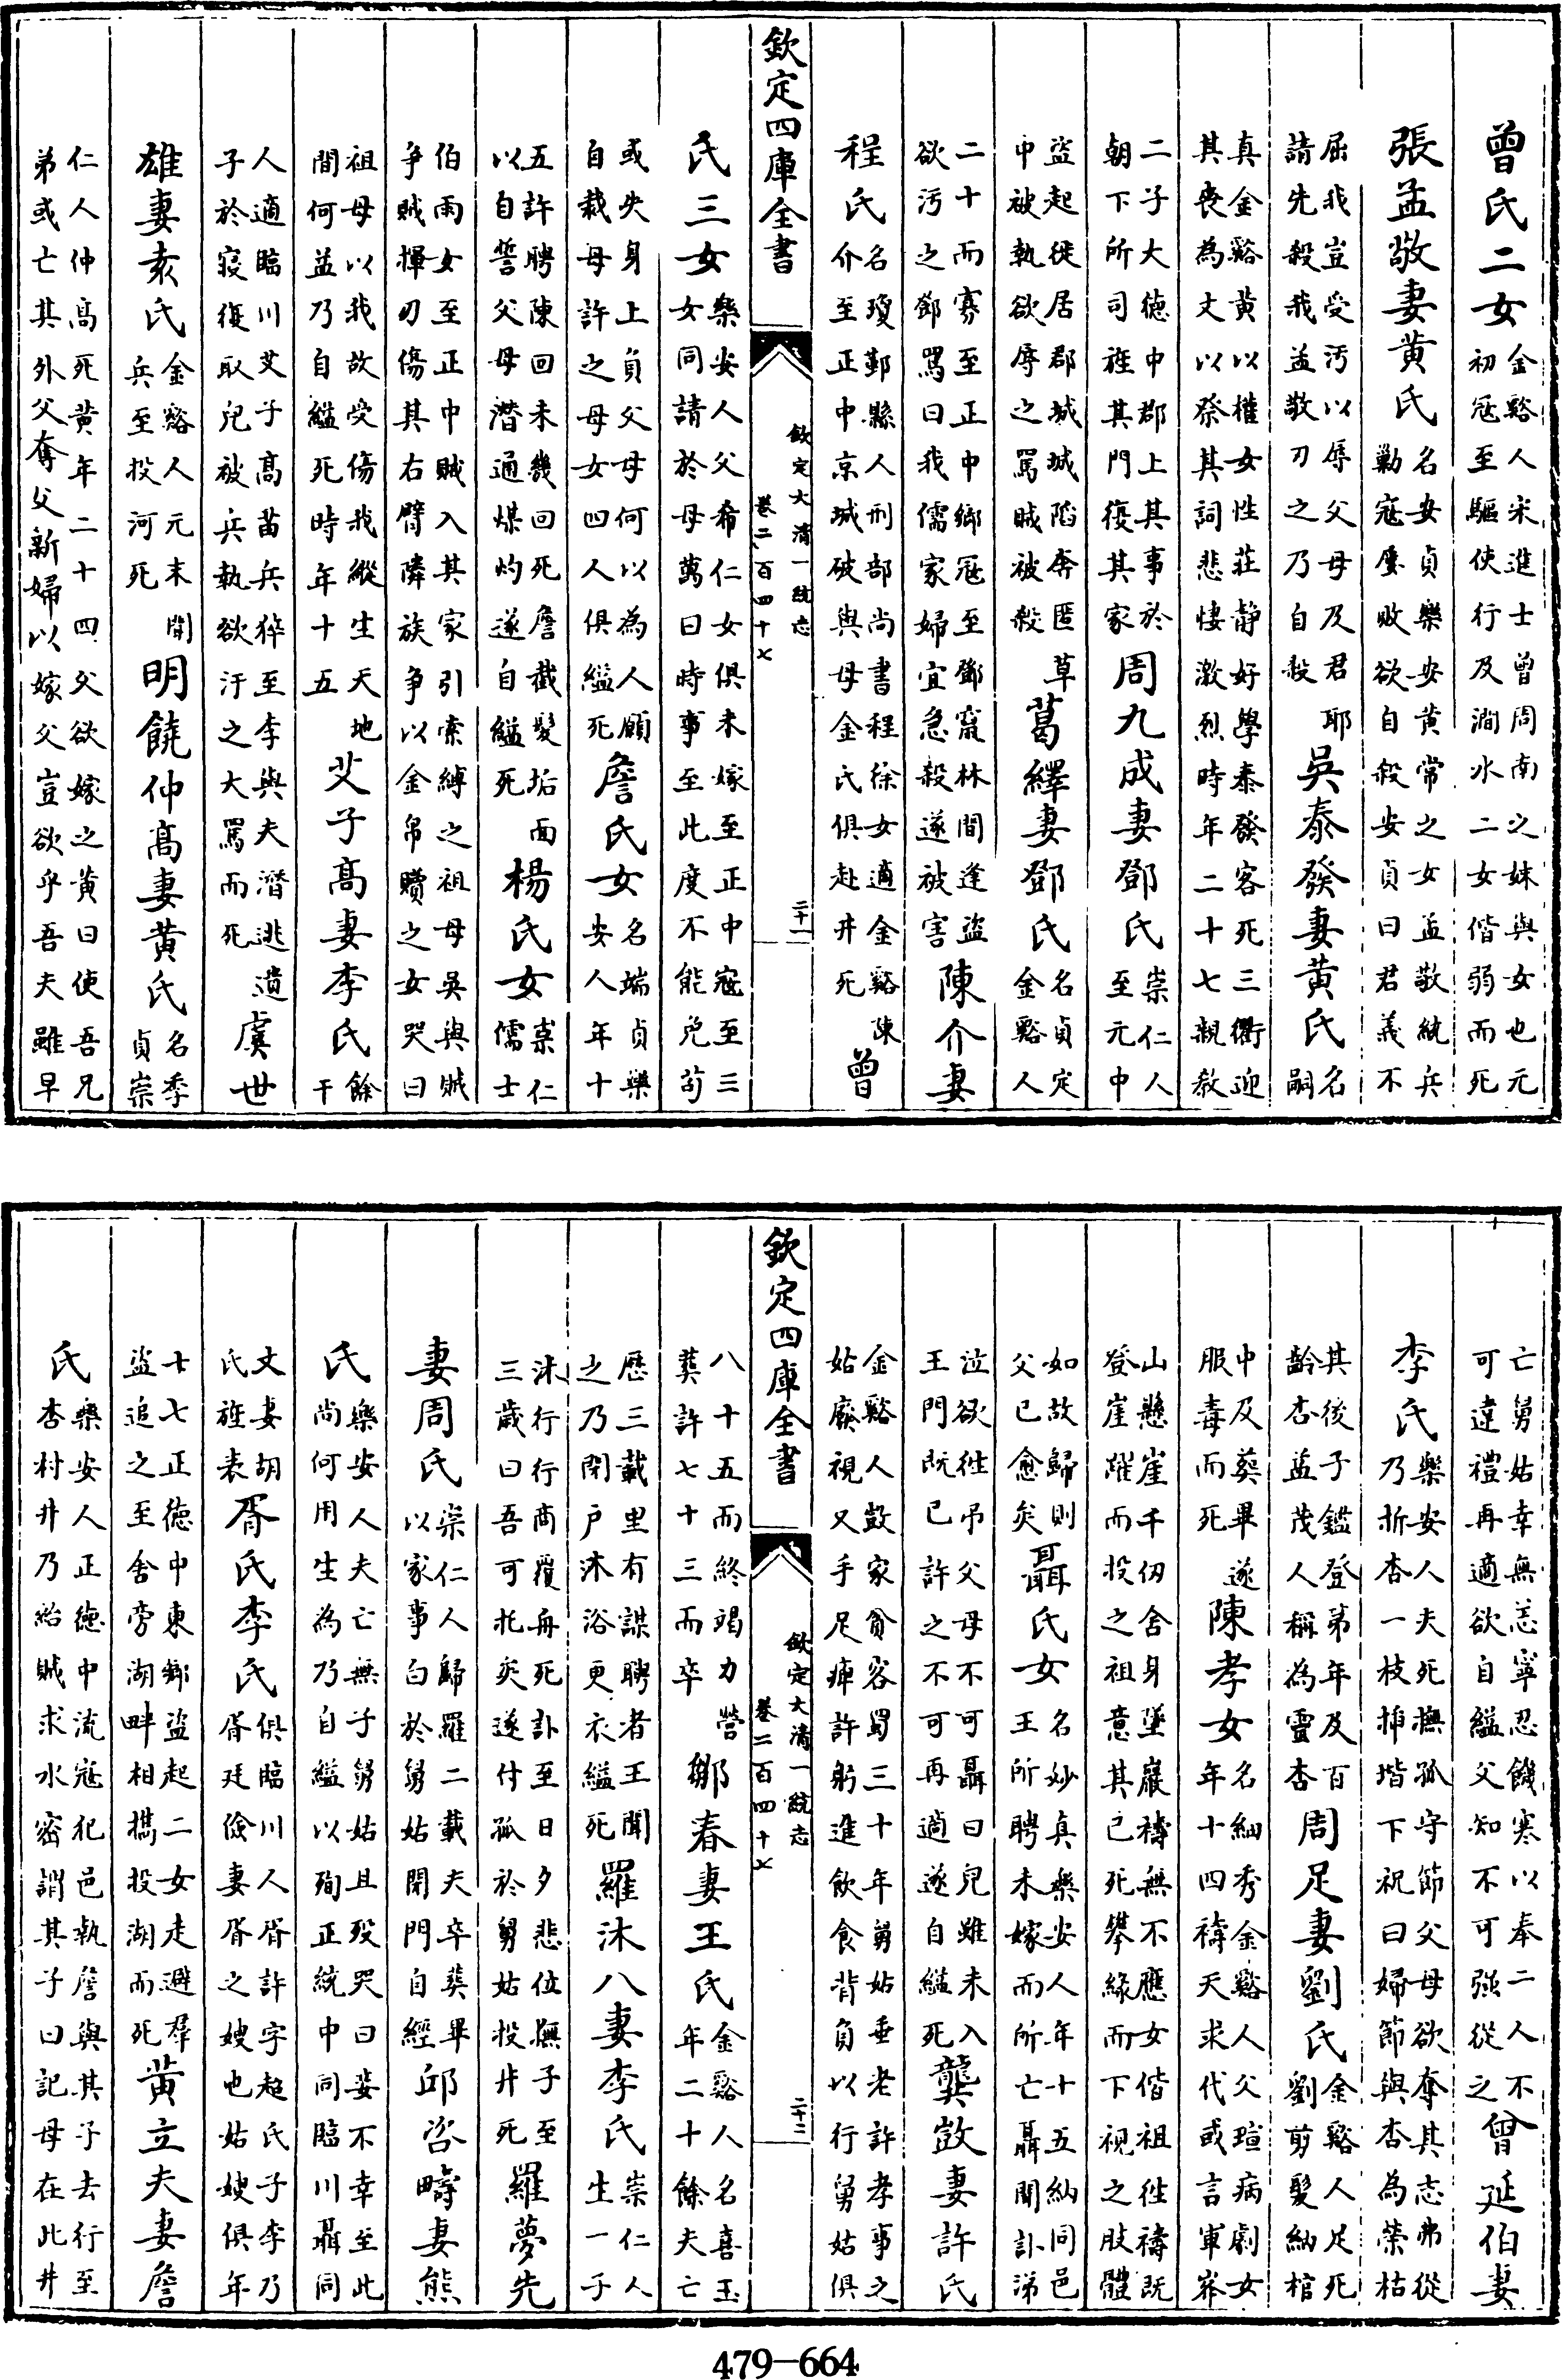 曾氏二女金谿人宋進士曾周南之妹與女也元初冦至驅使行及澗水二女偕弱而死
張孟敬妻黄氏名安貞樂安黄常之女孟敬統兵勦寇屢敗欲自殺安貞曰君義不
屈我豈受汚以辱父母及君耶請先殺我孟敬刃之乃自殺吳泰發妻黄氏名嗣
真金谿黄以權女性莊静好學泰發客死三衢迎其喪為文以祭其詞悲悽激烈時年二十七親教
二子大徳中郡上其事於朝下所司旌其門復其家周九成妻鄧氏崇仁人至元中
盜起徙居郡城城陷奔匿草中被執欲辱之罵賊被殺葛繹妻鄧氏名貞定金谿人
二十而寡至正中鄉冦至鄧竄林間逢盜欲汚之鄧罵曰我儒家婦宜急殺遂被害陳介妻
程氏名瓊鄞縣人刑部尚書程徐女適金谿陳介至正中京城破與母金氏俱赴井死曾
欽定四庫全書
欽定大清一統志
卷二百四十七
二十一
氏三女樂安人父希仁女俱未嫁至正中寇至三女同請於母萬曰時事至此度不能免苟
或失身上負父母何以為人願自裁母許之母女四人俱縊死詹氏女名端貞樂安人年十
五許聘陳回未幾回死詹截髮垢面以自誓父母潛通媒妁遂自縊死楊氏女崇仁儒士
伯雨女至正中賊入其家引索縛之祖母吳與賊争賊揮刃傷其右臂隣族争以金帛贖之女哭曰
祖母以我故受傷我縱生天地間何益乃自縊死時年十五艾子髙妻李氏餘干
人適臨川艾子髙苗兵猝至李與夫潛逃遺子於寢復取兒被兵執欲汙之大罵而死虞世
雄妻袁氏金谿人元末聞兵至投河死明饒仲髙妻黄氏名季貞崇
仁人仲髙死黄年二十四父欲嫁之黄曰使吾兄弟或亡其外父奪父新婦以嫁父豈欲乎吾夫雖早
亡舅姑幸無恙寧忍饑寒以奉二人不可違禮再適欲自縊父知不可强從之曾延伯妻
李氏樂安人夫死撫孤守節父母欲奪其志弗從乃折杏一枝揷堦下祝曰婦節與杏為榮枯
其後子鑑登弟年及百齡杏益茂人稱為靈杏周足妻劉氏金谿人足死劉剪髮納棺
中及葬畢遂服毒而死陳孝女名細秀金谿人父瑄病劇女年十四禱天求代或言軍峯
山懸崖千仞舍身墜巖禱無不應女偕祖徃禱既登崖躍而投之祖意其已死攀緣而下視之肢體
如故歸則父已愈矣聶氏女名妙真樂安人年十五納同邑王所聘未嫁而所亡聶聞訃涕
泣欲徃弔父母不可聶曰兒雖未入王門既已許之不可再適遂自縊死龔敳妻許氏
金谿人敳家貧客蜀三十年舅姑垂老許孝事之姑廢視又手足痺許躬進飲食背負以行舅姑俱
欽定四庫全書
欽定大清一統志
卷二百四十七
二十二
八十五而終竭力營葬許七十三而卒鄒春妻王氏金谿人名喜玉年二十餘夫亡
歴三載里有謀聘者王聞之乃閉户沐浴更衣縊死羅沐八妻李氏崇仁人生一子
沐行行商覆舟死訃至日夕悲位撫子至三歲曰吾可托矣遂付孤於舅姑投井死羅夢先
妻周氏崇仁人歸羅二載夫卒葬畢以家事白於舅姑閉門自經邱咨疇妻熊
氏樂安人夫亡無子舅姑且歿哭曰妾不幸至此尚何用生為乃自縊以殉正統中同臨川聶同
文妻胡氏旌表胥氏李氏俱臨川人胥許字趙氏子李乃胥廷儉妻胥之嫂也姑嫂俱年
十七正徳中東鄉盜起二女走避羣盜追之至舍旁湖畔相攜投湖而死黄立夫妻詹
氏樂安人正徳中流寇犯邑執詹與其子去行至杏村井乃紿賊求水密謂其子曰記母在此井
479-664